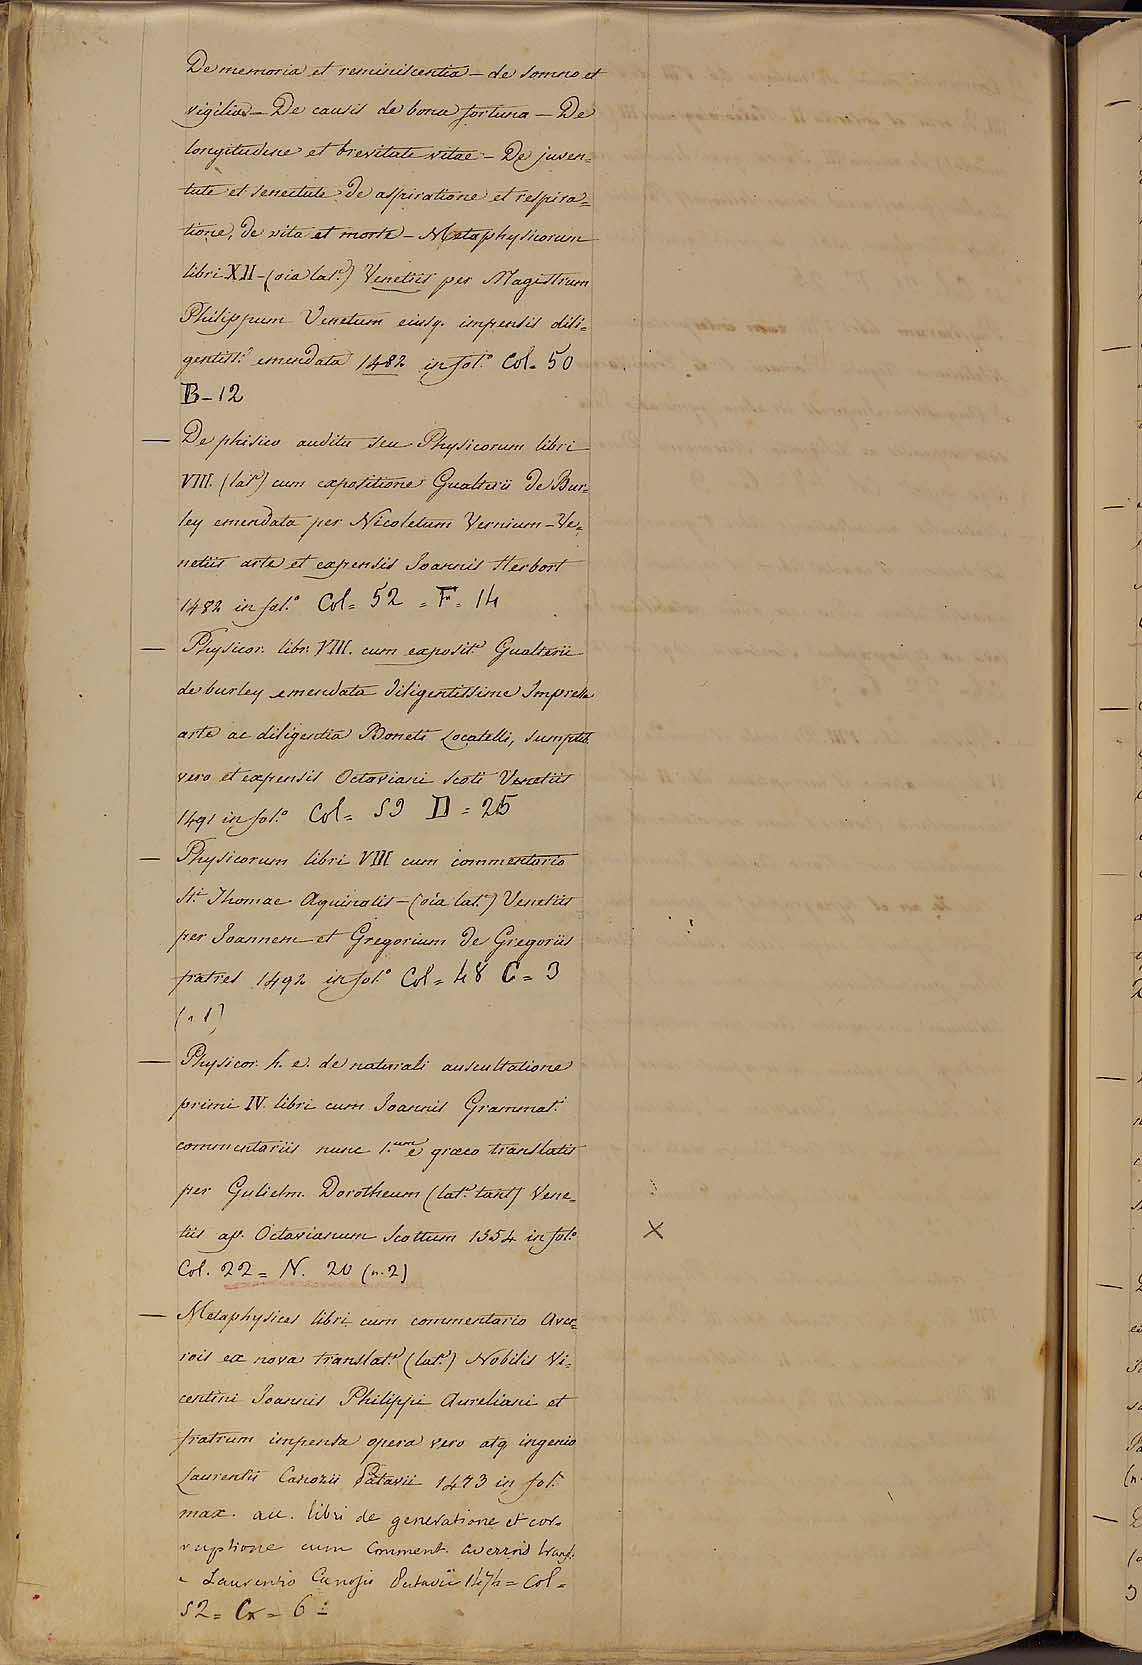 De memoria et reminiscentia – de somno et
vigilia – De causis de bona fortuna – De
longitudine et brevitate vitae – De juven=
tute et senectute de aspiratione et respira=
tione, de vita et morte – Metaphysicorum
libri XII – (oia lat.e) Venetiis per Magistrum
Philippum Venetum eiusq. impensis dili=
gentiss.e emendata 1482 in fol.o Col= 50
B – 12
— De phisico auditu seu Physicorum libri
VIII. (lat.e) cum expositione Gualterii de Bur=
ley emendata per Nicoletum Vernium – Ve=
netiis arte et expensis Joannis Herbort
1482 in fol.o Col= 52 = F= 14
— Physicor. libr. VIII. cum exposit.e Gualterii
de burley emendata diligentissime Impressa
arte ac diligentia Boneti Locatelli, sumptib.
vero et expensis Octaviani Scoti Venetiis
1491 in fol.o Col= 59 D = 25
— Physicorum libri VIII cum commentario
St. Thomae Aquinatis – (oia lat.e) Venetiis
per Joannem et Gregorium de Gregoriis
fratres 1492 in fol.o Col= 48 C= 3
(n 1)
— Physicor. h. e. de naturali auscultatione
primi IV. libri cum Joannis Grammat.
commentariis nunc 1.um e graeco translatis
per Gulielm. Dorotheum (lat.e tant) Vene=
tiis ap. Octavianum Scottum 1554 in fol.o
×
Col. 22 = N. 20 (n. 2)
— Metaphysices libri cum commentario Aver=
rois ex nova translat.e (lat.e) Nobilis Vi=
centini Joannis Philippi Aureliani et
fratrum impensa opera vero atq ingenio
Laurentii Canozii Patavii 1473 in fol.
max. acc. libri de generatione et cor=
ruptione cum Comment. Averrois transl.
Laurentio Canozio Patavii 1474 = Col=
52 = Cx = 6